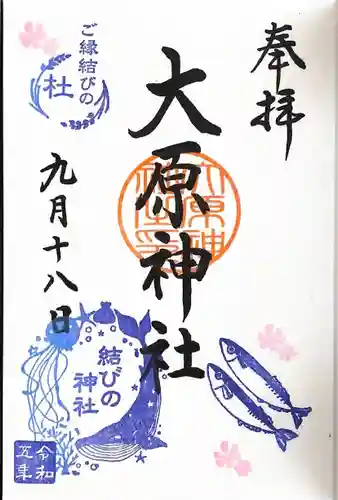 奉拝
大原神社
九月十八日
ご縁結びの
杜
結びの
神社
令和
五年